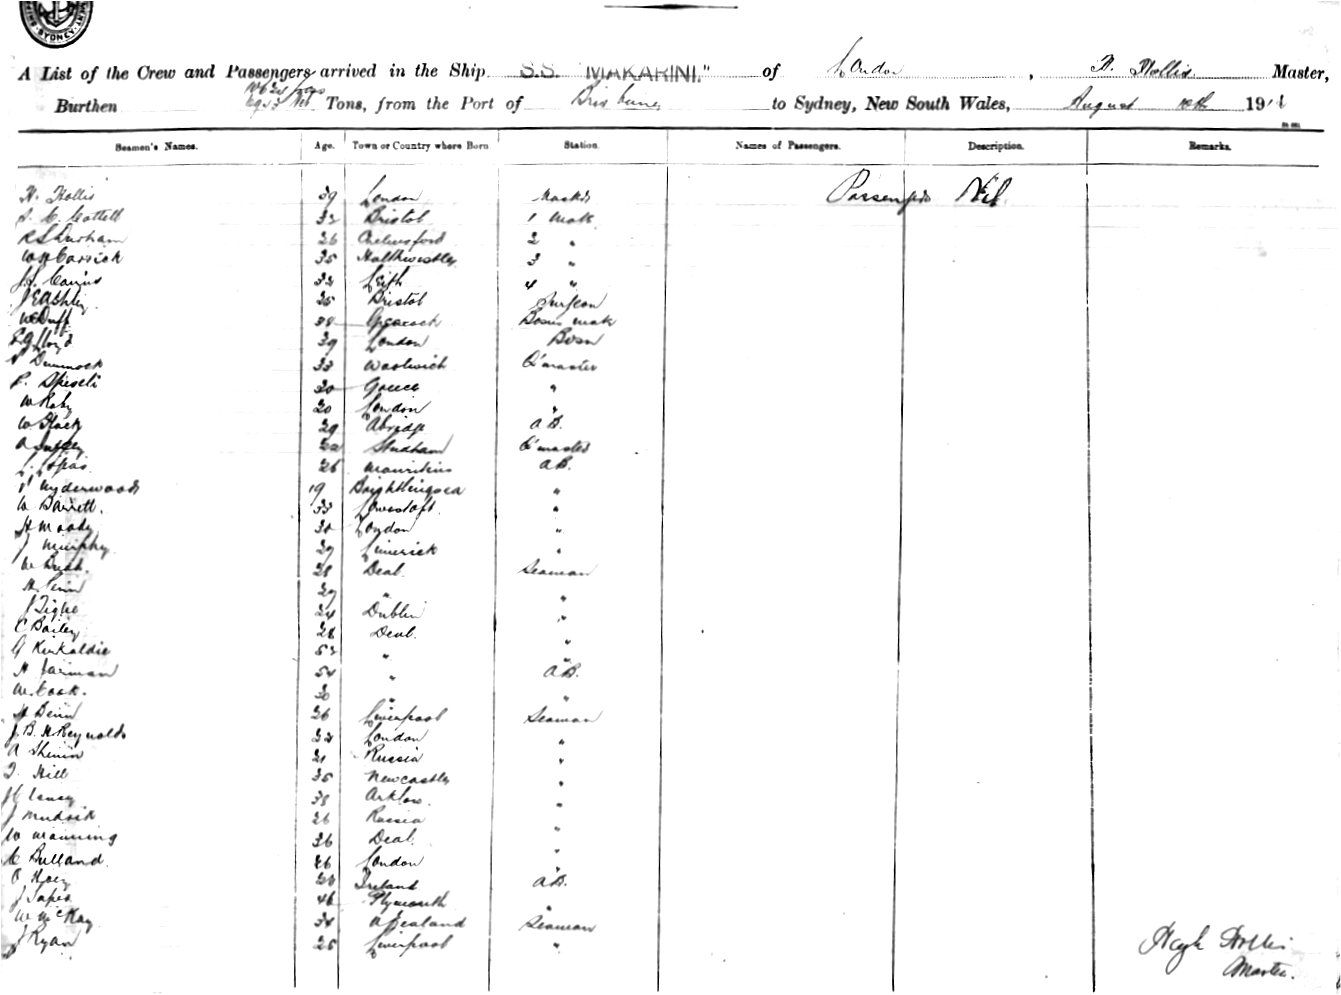 SYDNEY
A List of the Crew and Passengers arrived in the Ship S.S. "MAKARINI." of London, H. Hollis Master,
Burthen Tons, from the Port of Brisbane to Sydney, New South Wales, August 10th 191
Seamen's Names. Age. Town or Country where Born Station. Names of Passengers. Description. Remarks.
H. Hollis 39 London Master Passengers Nil
S. C. Cottell 32 Bristol 1 Mate
R S Durham 26 Chelmsford 2 "
W H Carrick 35 Haltwhistle 3 "
J. S. Cairns 32 Leith 4 "
J E Ashley 25 Bristol Surgeon
W Duff Greenock Bosns mate
E G Lloyd 39 London Bosn
Dimmock 33 Woolwich Q'master
P. Spiseli 30 Greece "
W Raby 20 London "
W Slack 29 Abridge A.B.
A 22 Studham Q'master
L. Lopas 26 Mauritius A.B.
Wyderwood 19 Brightlingsea "
W Barrett. 33 Lowestoft "
H Moody 30 London "
J Murphy 29 Limerick "
W Bush. 28 Deal Seaman
H. Penn 27 " "
J Tighe 24 Dublin "
C Bailey 28 Deal "
G Kirkaldie 52 " "
H Jarman 54 " A.B.
W. Cook. 30 " "
H Benn 26 Liverpool Seaman
J. B. H Reynolds 22 London "
A Shinin 21 Russia "
T. Hill 35 Newcastle "
38 Arklow. "
J Mudsik 26 Russia "
W Manning 36 Deal "
C Bulland. 26 London "
O Hoey 28 Ireland A.B.
J Tapes 46 Plymouth "
W McKay 34 N Zealand Seaman
J Ryan 25 Liverpool "
Hugh Hollis
Master.